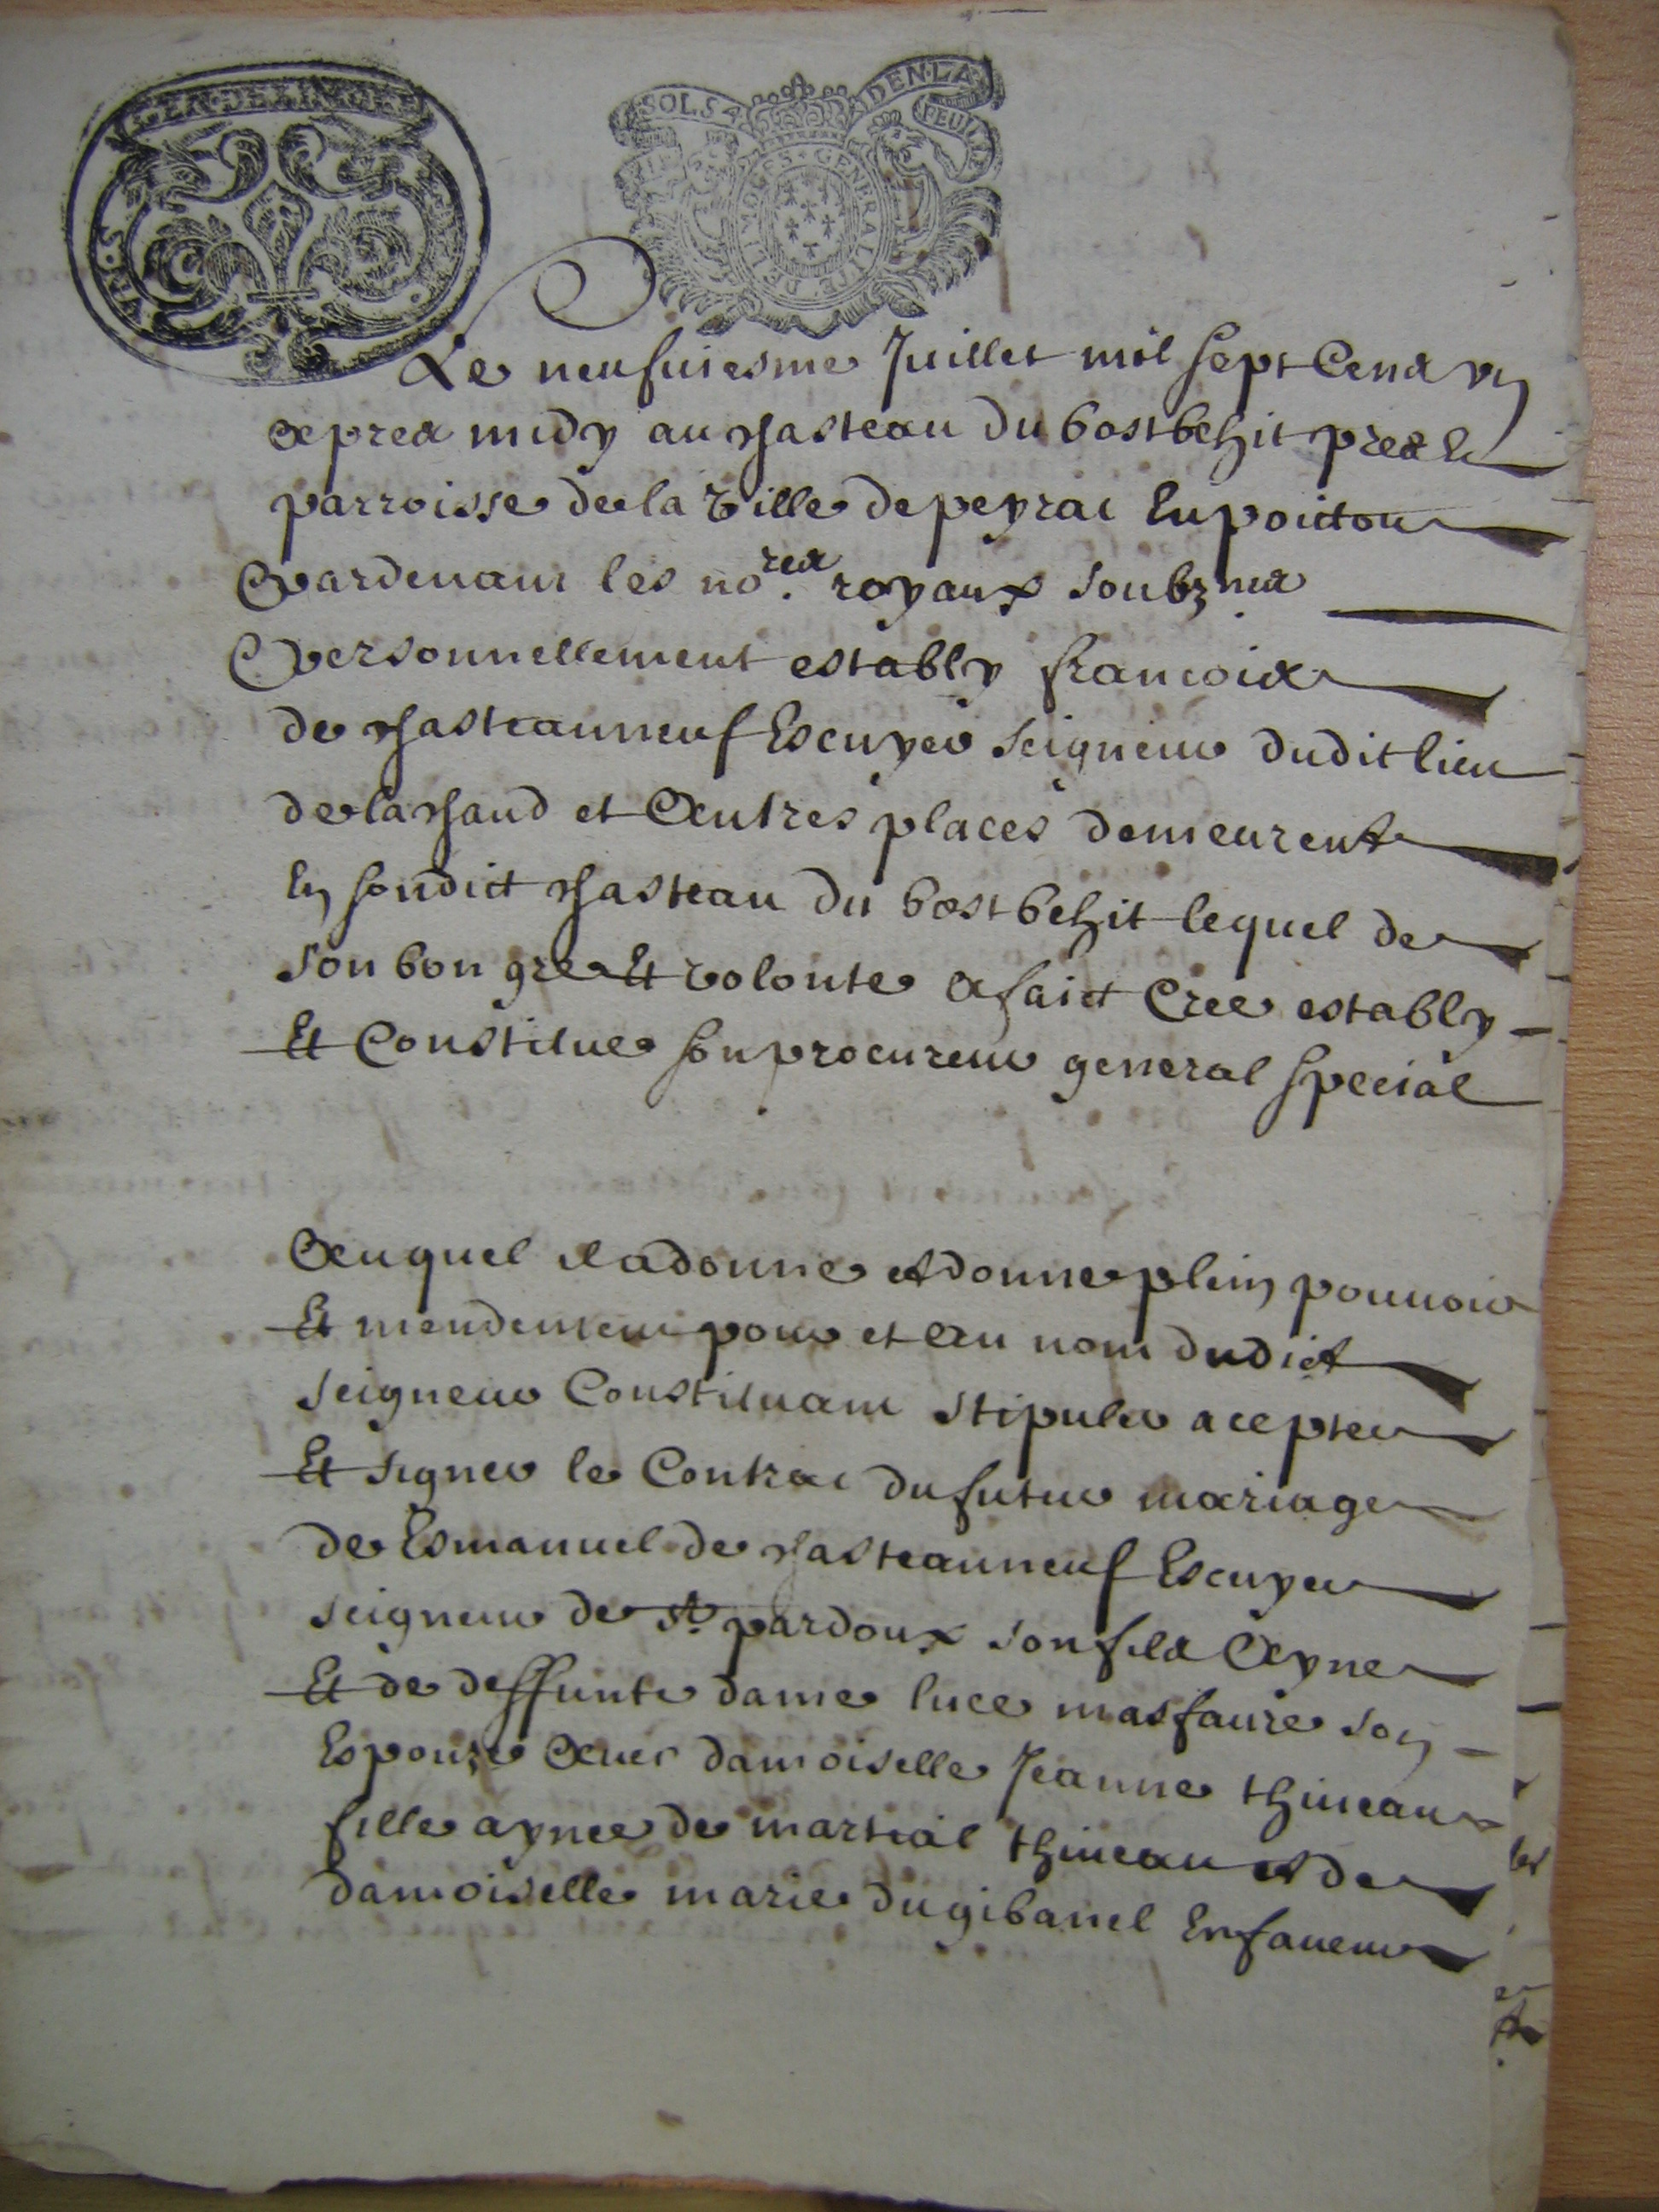 SOLS 4 DEN. LA FEUILLE
GENERALITE DE LIMOGES
Le neufiesme Juillet mil sept Cens
apres midy au chasteau du bostbechit pres le
parroisse de la Ville de peyrat En poitou
Pardevant les no.res royaux soubznes
Personnellement estably francois
de chasteauneuf Escuyer seigneur dudit lieu
de et Autres places demeurent
En sondit chasteau du bost bechit lequel de
son bon gré et volonte a faict Cree estably
Et Constitue son procureur general special
Auquel il a donne et donne plein pouvoir
Et mendement pour et au nom dudict
seigneur Constituant stipuler accepter
Et signer le Contrat du futur mariage
de Esmanuel de chasteauneuf Escuyer
seigneur de St pardoux son fils Ayne
Et de deffunte dame luce masfaure son
Espouse Avec damoiselle Jeanne thineau
fille aynee de martial thineau et de
damoiselle marie du gibanel Enfanem